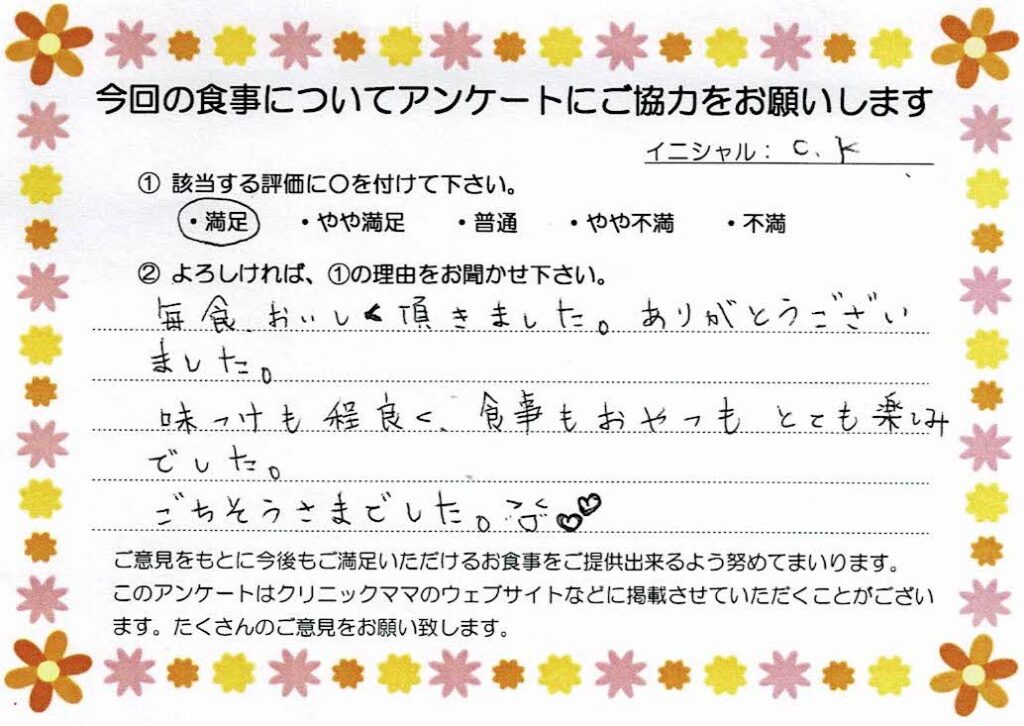 今回の食事についてアンケートにご協力をお願いします
イニシャル： C、K
① 該当する評価に〇を付けて下さい。
・満足 ・やや満足 ・普通 ・やや不満 ・不満
② よろしければ、①の理由をお聞かせ下さい。
毎食、おいしく頂きました。ありがとうござい
ました。
味つけも程良く、食事もおやつもとても楽しみ
でした。
ごちそうさまでした。
ご意見をもとに今後もご満足いただけるお食事をご提供出来るよう努めてまいります。
このアンケートはクリニックママのウェブサイトなどに掲載させていただくことがござい
ます。たくさんのご意見をお願い致します。